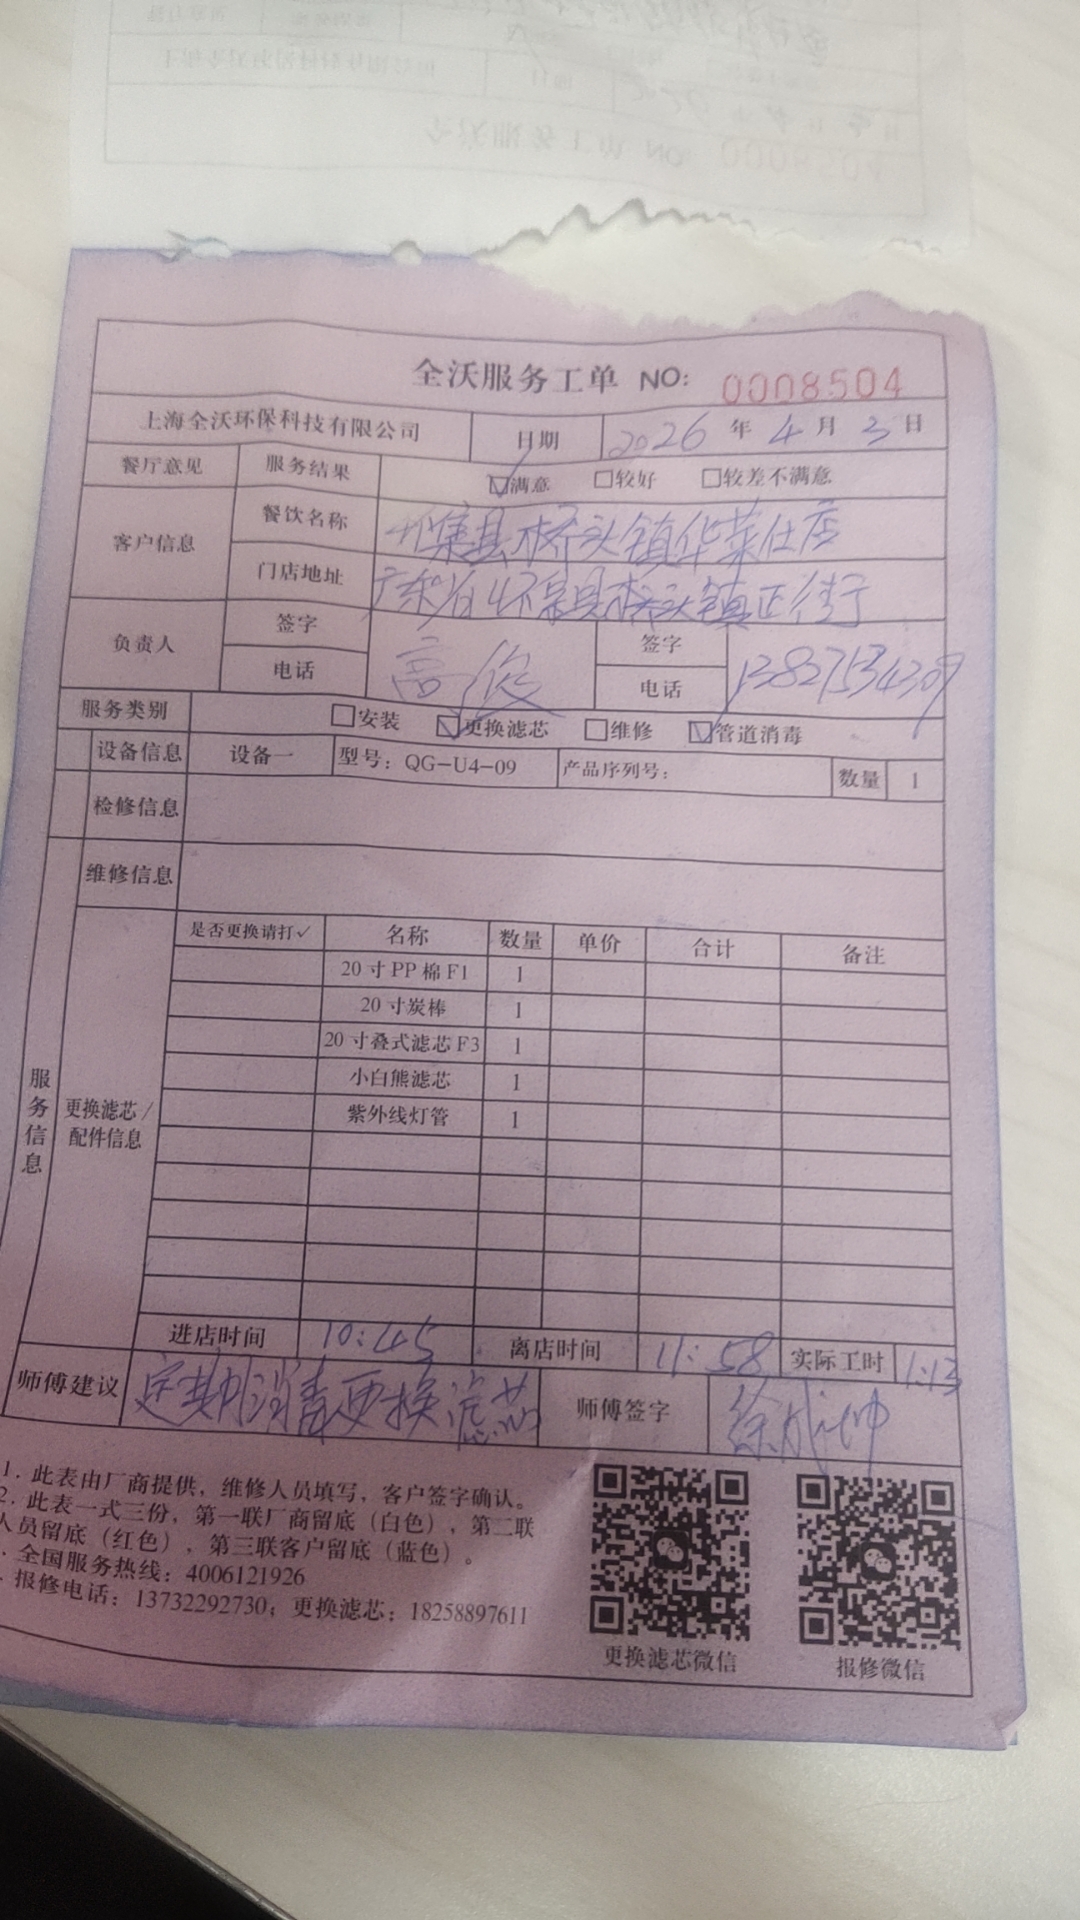 全沃服务工单 NO: 0008504
上海全沃环保科技有限公司 日期 2026 年 4 月 3 日
餐厅意见 服务结果 ☑满意 □较好 □较差不满意
客户信息 餐饮名称 集县桥头镇华莱仕店
门店地址 广东省 县桥头镇正街
负责人 签字 高俊 签字
电话 电话 13827534309
服务类别 □安装 ☑更换滤芯 □维修 ☑管道消毒
设备信息 设备一 型号: QG-U4-09 产品序列号: 数量 1
检修信息
维修信息
服务信息
更换滤芯/配件信息
是否更换请打✓ 名称 数量 单价 合计 备注
20寸PP棉F1 1
20寸炭棒 1
20寸叠式滤芯F3 1
小白熊滤芯 1
紫外线灯管 1
进店时间 10:45 离店时间 11:58 实际工时 1:13
师傅建议 定期消毒更换滤芯 师傅签字 徐成坤
1. 此表由厂商提供，维修人员填写，客户签字确认。
2. 此表一式三份，第一联厂商留底（白色），第二联
人员留底（红色），第三联客户留底（蓝色）。
. 全国服务热线: 4006121926
. 报修电话: 13732292730; 更换滤芯: 18258897611
更换滤芯微信 报修微信